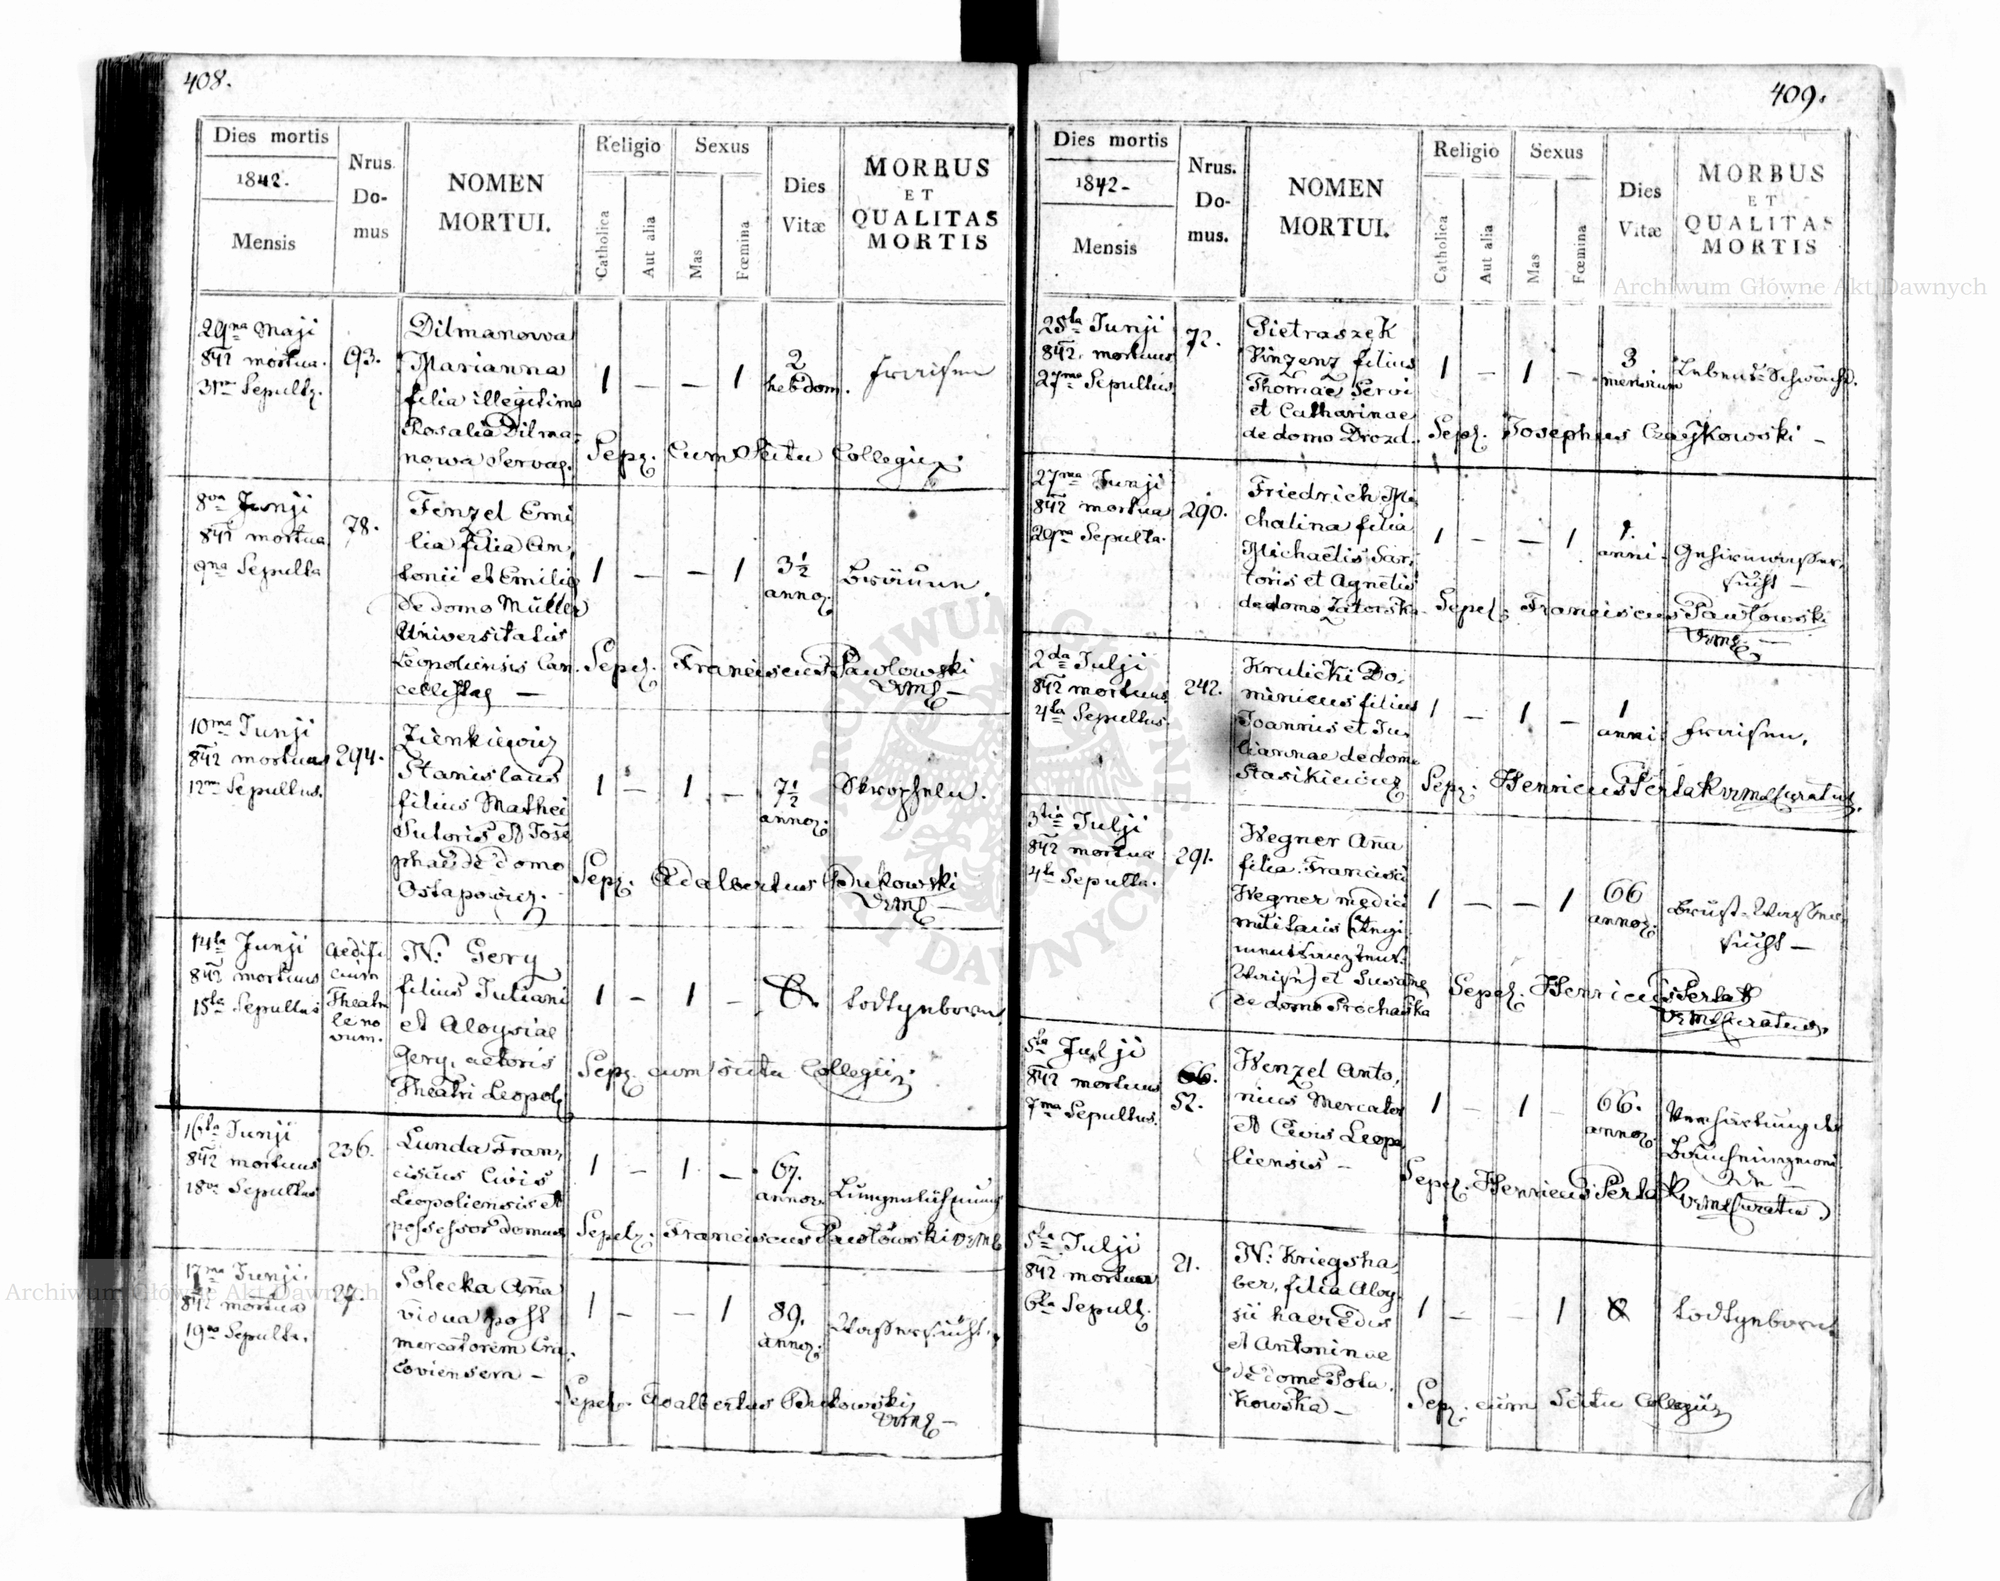 408.
Dies mortis
1842.
Mensis
Nrus
Do-
mus
NOMEN
MORTUI.
Religio
Catholica
Aut alia
Sexus
Mas
Fœmina
Dies
Vitæ
MORBUS
ET
QUALITAS
MORTIS
29na Maji
842 mortua.
31ma Sepulta.
93.
Dilmanowa
Marianna
filia illegitima
Rosalia Dilma-
nowa Servae.
1 — — 1
2
hebdom.
Fraisen
Sep. cum Scitu Collegii
8va Junji
842 mortua
9na Sepulta
78.
Fenzel Emi
lia filia An,
tonii et Emilia
de domo Müller
Universitatis
Leopoliensis Can,
cellistae —
1 — — 1
3½
annor.
Bräune.
Sepel. Franciscus Pawlowski
10ma Junji
842 mortuus
12ma Sepultus.
294.
Zienkiewicz
Stanislaus
filius Mathei
Sutoris et Jose
phae de domo
Ostapowicz.
1 — 1 —
7½
annor.
Skropheln.
Sep. Adalbertus Dukowski
14ta Junji
842 mortuus
15ta Sepultus
Aedifi
cium
Theatra
le no
vum.
N: Gery
filius Juliani
et Aloysiae
Gery, actoris
Theatri Leopol
1 — 1 —
Todtgeboren
Sep. cum scitu Collegii
16ta Junji
842 mortuus
18va Sepultus
236.
Lunda Fran,
ciscus Civis
Leopoliensis et
possessor domus
1 — 1 —
67.
annor.
Lungenlähmung
Sepel. Franciscus Pawlowski
17ma Junji.
842 mortua
19na Sepulta.
27.
Solecka Anna
vidua post
mercatorem Cra,
coviensem —
1 — — 1
89.
annor.
Wassersucht.
Sepel. Adalbertus Dukowski
409.
Dies mortis
1842-
Mensis
Nrus.
Do-
mus.
NOMEN
MORTUI.
Religio
Catholica
Aut alia
Sexus
Mas
Fœmina
Dies
Vitæ
MORBUS
ET
QUALITAS
MORTIS
25ta Junji
842. mortuus
27ma Sepultus
72.
Pietraszek
Vinzenz filius
Thomae Servi
et Catharinae
de domo Drozd.
1 — 1 —
3
mensium
Lebens-Schwäche.
Sep. Josephus Czaykowski —
27ma Junji
842 mortua
29na Sepulta.
290.
Friedrich Mi
chalina filia
Michaelis Sar,
toris et Agnetis
de domo Zatorska
1 — — 1
1.
anni.
Gehirnwasser,
sucht —
Sepel. Franciscus Pawlowski
2da Julji
842 mortuus
4ta Sepultus.
242.
Krulicki Do,
minicus filius
Joannis et Ju,
liannae de domo
Stasikiewicz
1 — 1 —
1
anni
Fraisen.
Sep. Henricus Perlak
3tia Julji
842 mortua
4ta Sepulta.
291.
Wegner Anna
filia Francisci
Wegner medici
militaris
et Susanne
de domo Prochaska
1 — — 1
66
annor.
Brust-Wasser
sucht —
Sepel. Henricus Perlak
5ta Julji
842 mortuus
7ma Sepultus.
66.
52.
Wenzel Anto,
nius Mercator
et Civis Leopo
liensis —
1 — 1 —
66.
annor.
Verhärtung der
Sepel. Henricus Perlak
5ta Julji
842 mortua
6ta Sepult.
21.
N: Kriegsha,
ber, filia Aloy,
sii haeredis
et Antoninae
de domo Pola,
kowska —
1 — — 1
Todtgeboren
Sep. cum Scitu Collegii
Archiwum Główne Akt Dawnych
Archiwum Główne Akt Dawnych
ARCHIWUM GŁÓWNE AKT DAWNYCH